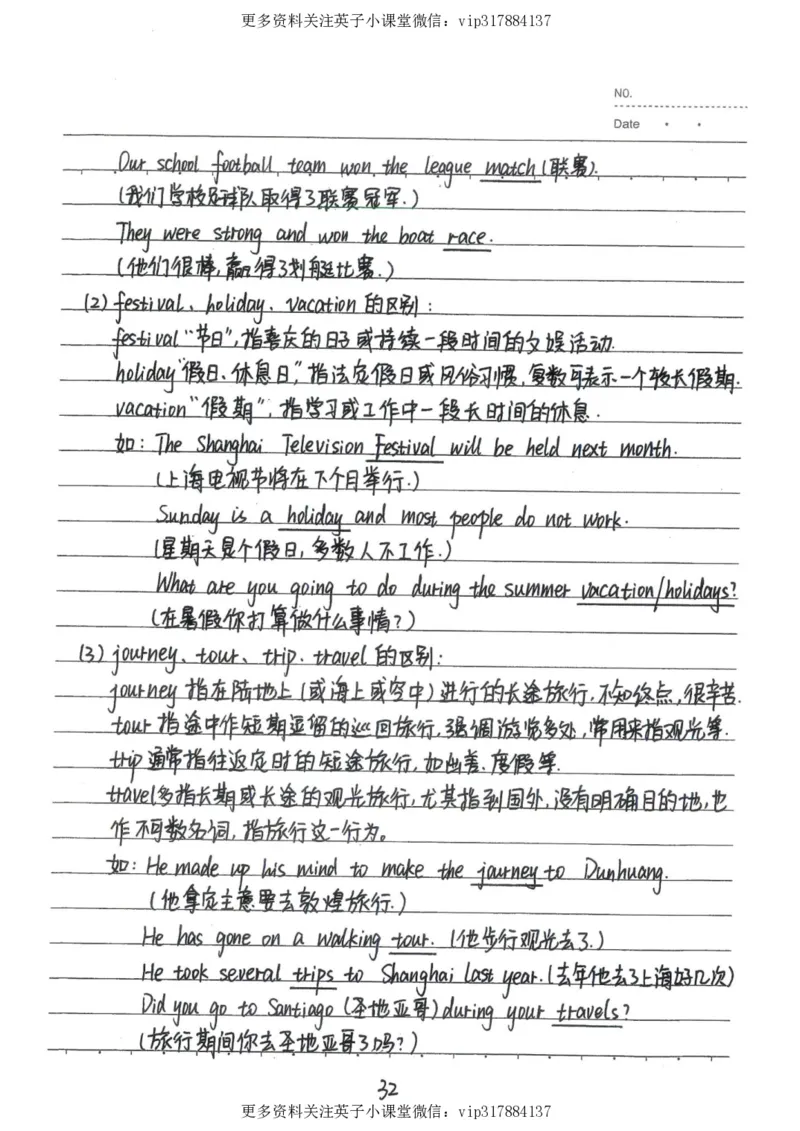 更多资料关注英子小课堂微信：vip317884137
NO.
Date
Our school football team won the league match (联赛).
(我们学校足球队取得了联赛冠军.)
They were strong and won the boat race.
(他们很棒, 赢得了划艇比赛.)
(2) festival、holiday、vacation 的区别:
festival "节日", 指喜庆的日子或持续一段时间的文娱活动.
holiday "假日、休息日", 指法定假日或风俗习惯, 复数可表示一个较长假期.
vacation "假期", 指学习或工作中一段长时间的休息.
如: The Shanghai Television Festival will be held next month.
(上海电视节将在下个月举行.)
Sunday is a holiday and most people do not work.
(星期天是个假日, 多数人不工作.)
What are you going to do during the summer vacation/holidays?
(在暑假你打算做什么事情?)
(3) journey、tour、trip、travel 的区别:
journey 指在陆地上 (或海上或空中) 进行的长途旅行, 不知终点, 很辛苦.
tour 指途中作短期逗留的巡回旅行, 强调游览多处, 常用来指观光等.
trip 通常指往返定时的短途旅行, 如出差、度假等.
travel 多指长期或长途的观光旅行, 尤其指到国外, 没有明确目的地, 也
作不可数名词, 指旅行这一行为。
如: He made up his mind to make the journey to Dunhuang.
(他拿定主意要去敦煌旅行.)
He has gone on a walking tour. (他步行观光去了.)
He took several trips to Shanghai last year. (去年他去了上海好几次)
Did you go to Santiago (圣地亚哥) during your travels?
(旅行期间你去圣地亚哥了吗?)
32
更多资料关注英子小课堂微信：vip317884137